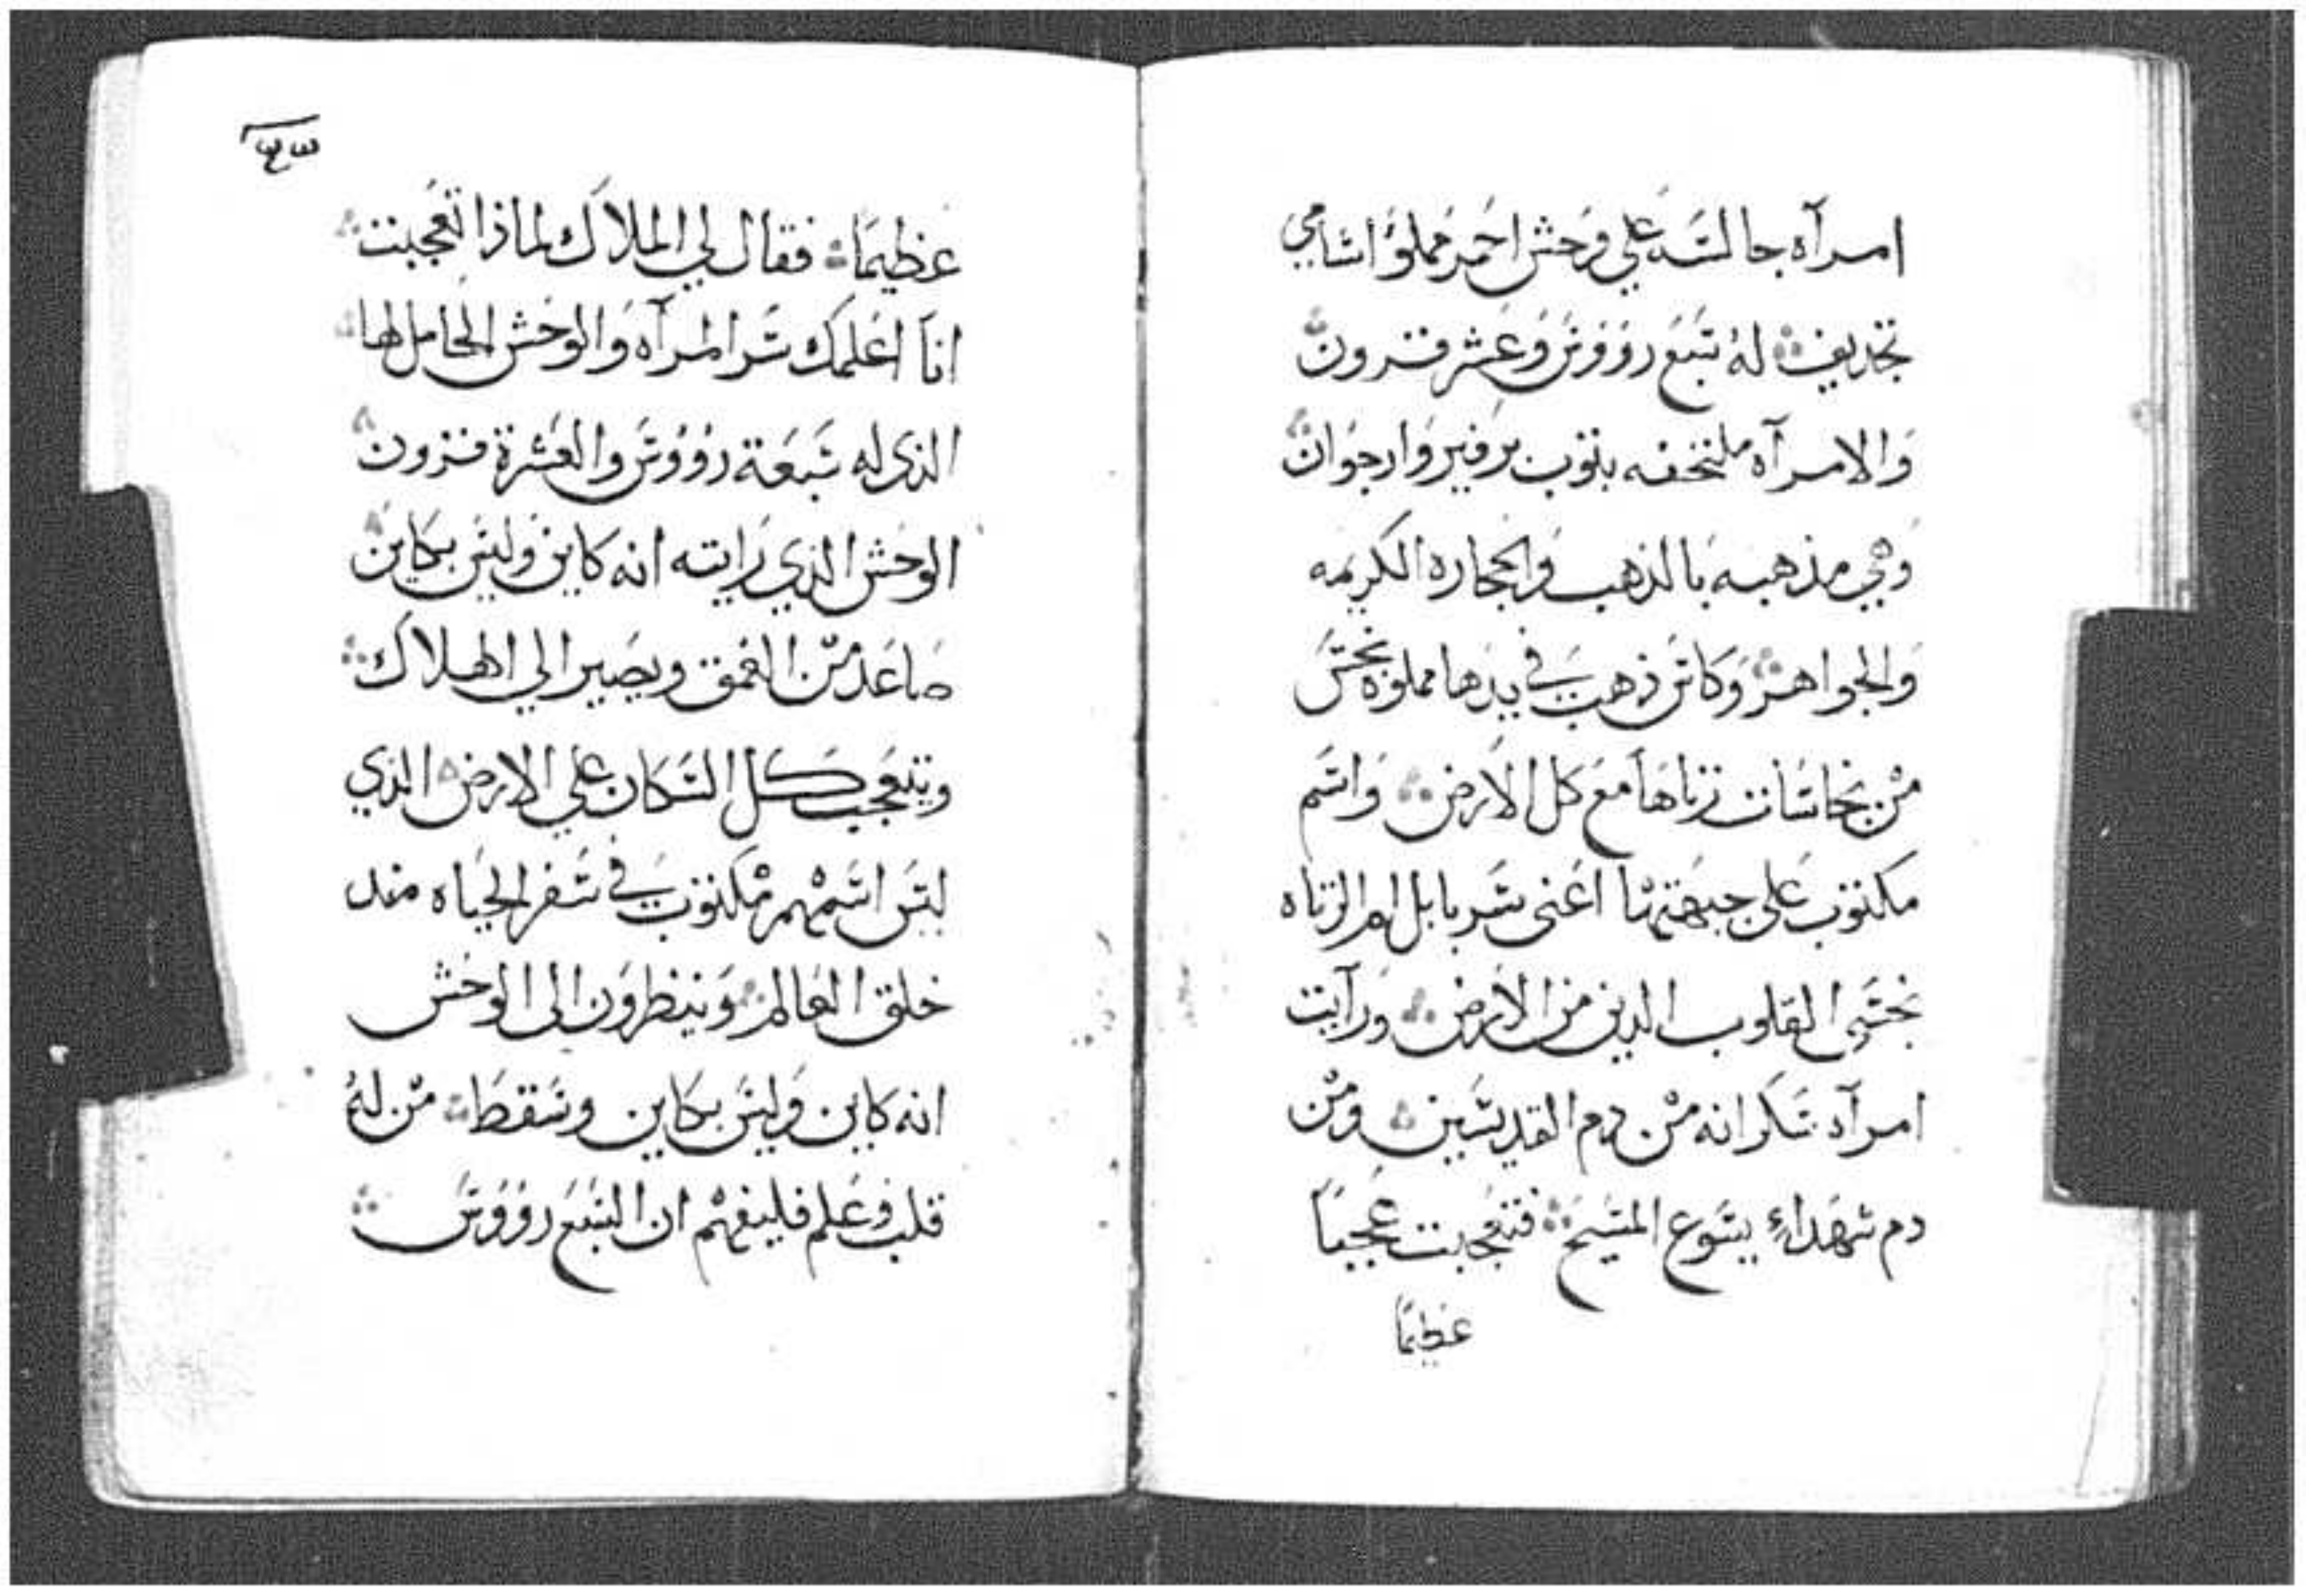 امرآه جالسَه علي وَحش احمَر مملوُ اسَامي
تجديف له سَبعَ رووُوسَ وَعَشر قرون
وَالامرآه ملتحفه بثوب برفير وَارجوَان
وَهي مذهبه بالذهب وَالحجاره الكريمه
وَالجواهر وَكاسَ ذهب في يدها مملوه نجسَ
منْ نجاسَات زناهَا مَع كل الارض وَاسَم
مكتوب عَلى جبهَتها اعَنى سَر بابل ام الزناه
نجسَى القلوب الدين من الارض وَرآيت
امرآه سَكرانه منْ دم القديسَين ومنْ
دم شهَداء يسَوع المسَيح فتعجبت عَجبًا
عظيمًا
عظيمًا فقال لي الملاَك لماذا تعَجبت
انَا اعَلمَك سَر المرآه وَالوحَش الحامل لها
الذى له سَبعَة رووُوسَ والعَشرة قرون
الوحَش الذي رَايته انه كاين وَليسَ بكاين
صَاعَد منْ العمق ويصَير الي الهلاَك
ويتعَجب كل السَكان علي الارض الذي
ليسَ اسَمْهم مْكتوب في سَفر الحيَاه مند
خلق العَالم وَينظروَن الى الوحَش
انه كاين وَليسَ بكاين وسَقطَا منْ لهُ
قلب وعَلم فليفهْم ان السَبعَ رووُوسَ